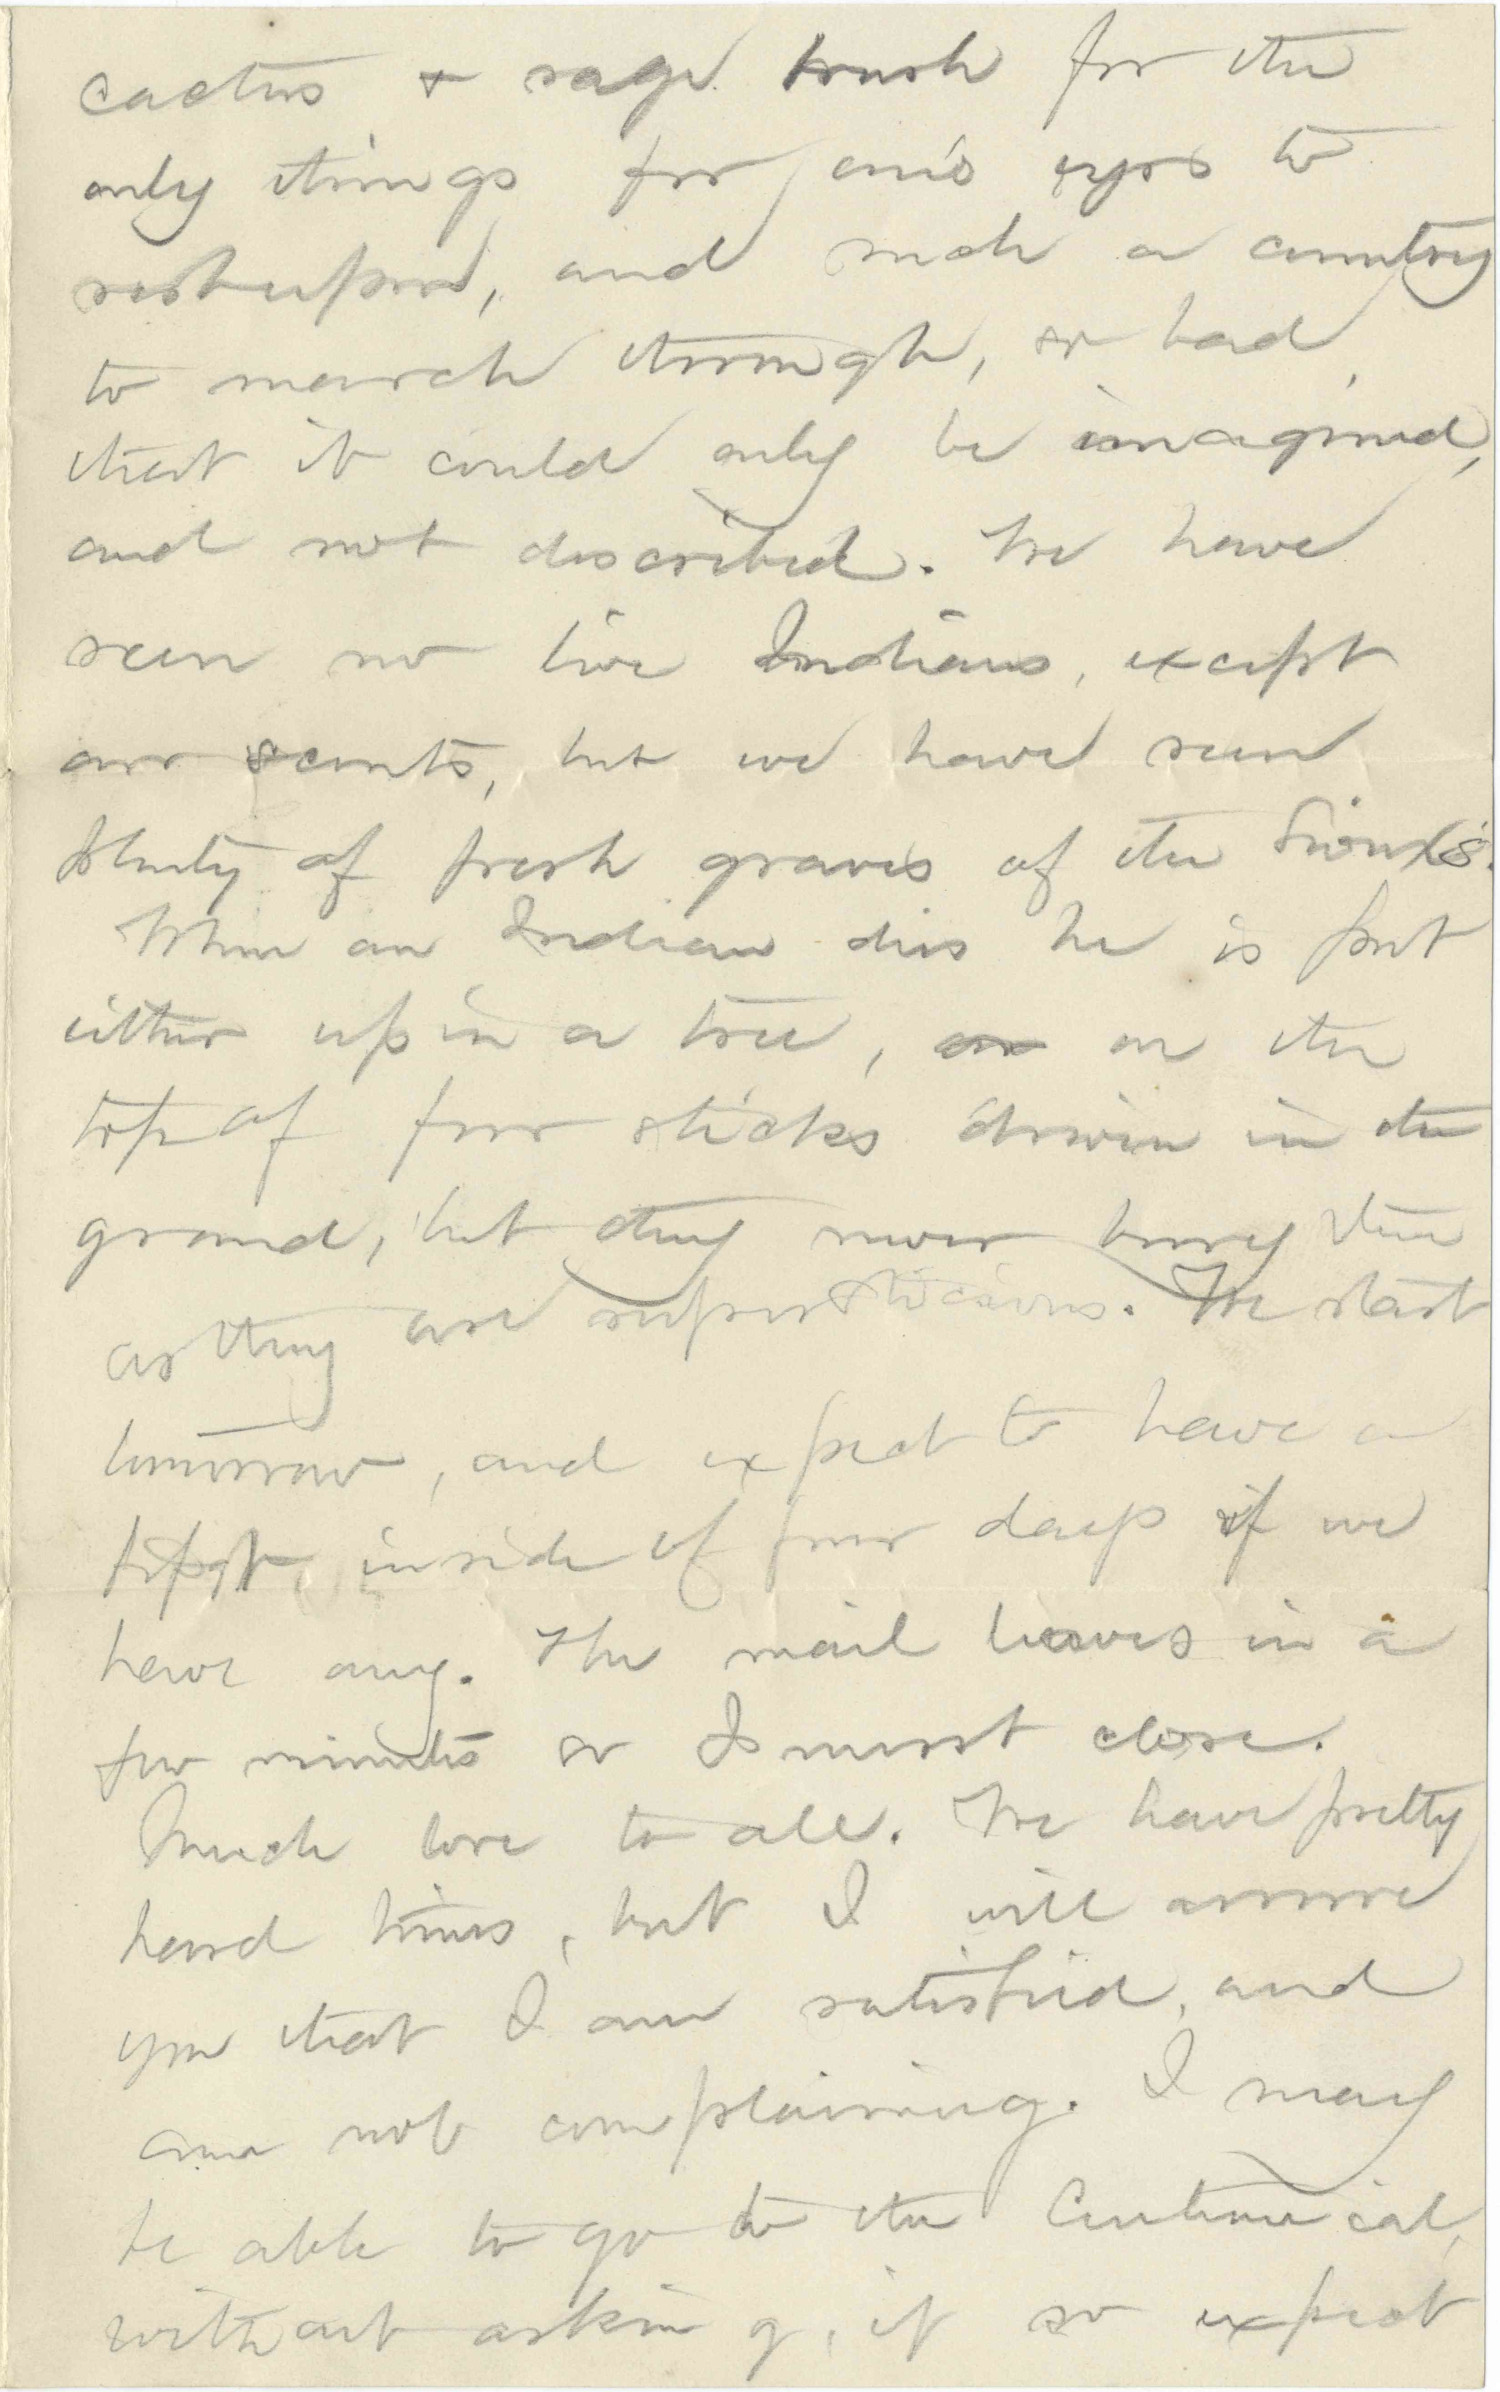 cactus & sage brush for the
only things for one's eyes to
rest upon, and such a country
to march through, so bad,
that it could only be imagined,
and not discribed. We have
seen no live Indians, except
our scouts, but we have seen
plenty of fresh graves of the Sioux's.
When an Indian dies he is put
either up in a tree, or on the
top of four sticks driven in the
ground, but they never bury them
as they are superstitious. We start
tomorrow, and expect to have a
fight, inside of four days if we
have any. The mail leaves in a
few minutes so I must close.
Much love to all. We have pretty
hard times, but I will assure
you that I am satisfied, and
am not complaining. I may
be able to go to the Centennial,
without asking, if so expect